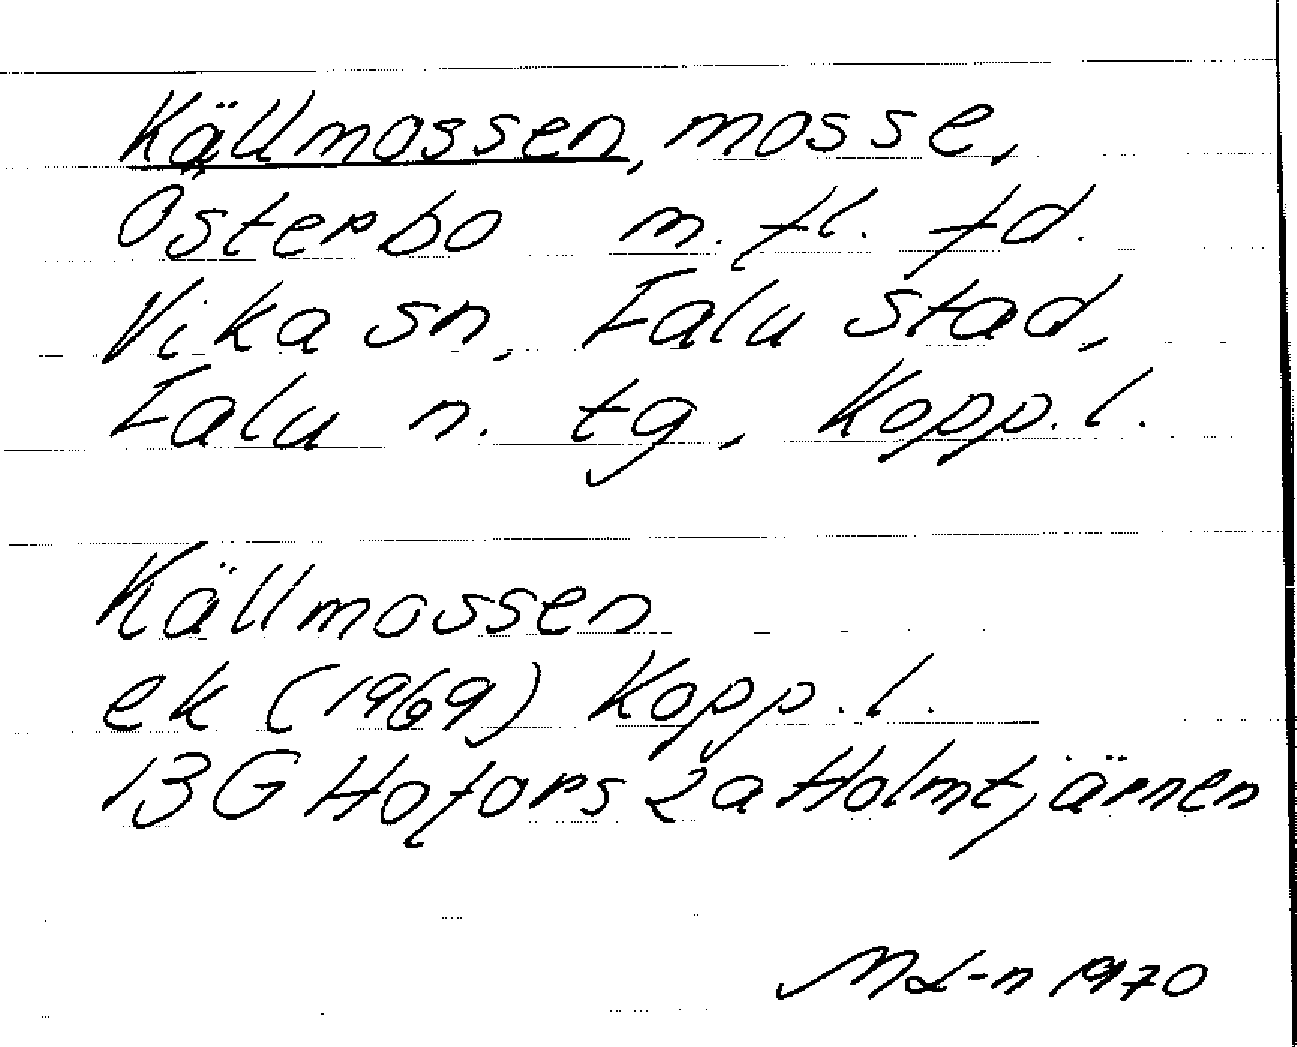 Källmossen, mosse,
Österbo m. fl. fd.
Vika sn, Falu stad,
Falu n. tg, Kopp. l.
Källmossen
ek (1969) Kopp. l.
13G Hofors 2a Holmtjärnen
ML-n 1970